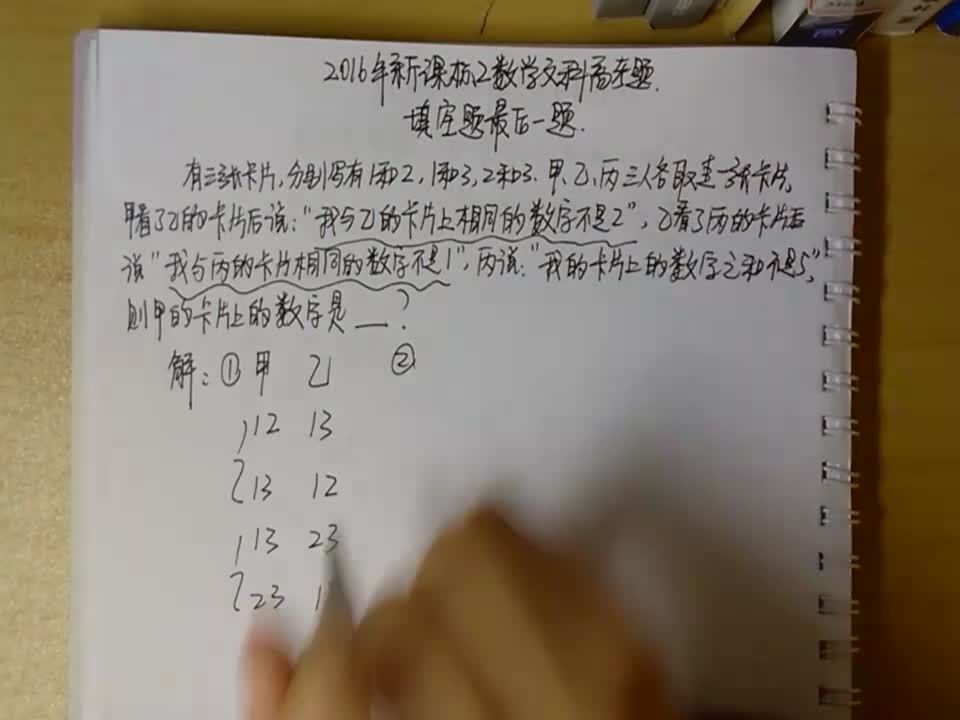 2016年新课标2数学文科高考题.
填空题最后一题.
有三张卡片,分别写有1和2,1和3,2和3.甲、乙、丙三人各取走一张卡片,
甲看了乙的卡片后说:"我与乙的卡片上相同的数字不是2",乙看了丙的卡片后
说"我与丙的卡片相同的数字不是1",丙说:"我的卡片上的数字之和不是5",
则甲的卡片上的数字是__?
解:①甲 乙 ②
12 13
13 12
13 23
23 1